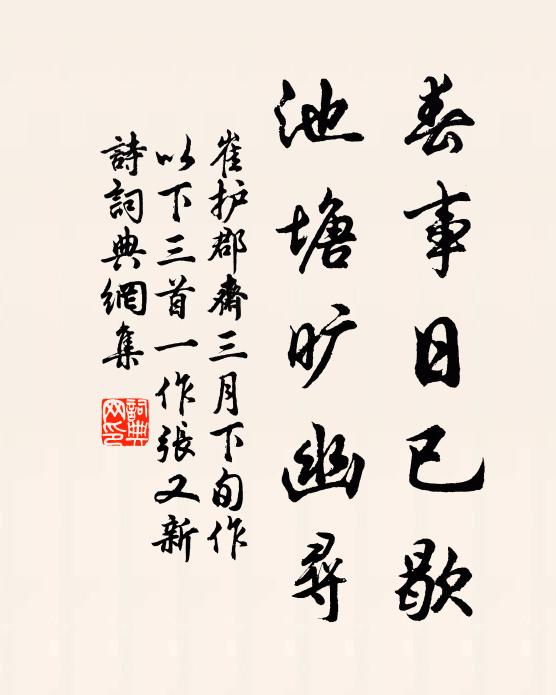 春事日已歇
池塘旷幽尋
崔护郡齋三月下旬作
以下三首一作張又新
詩詞典網集
詞典網印